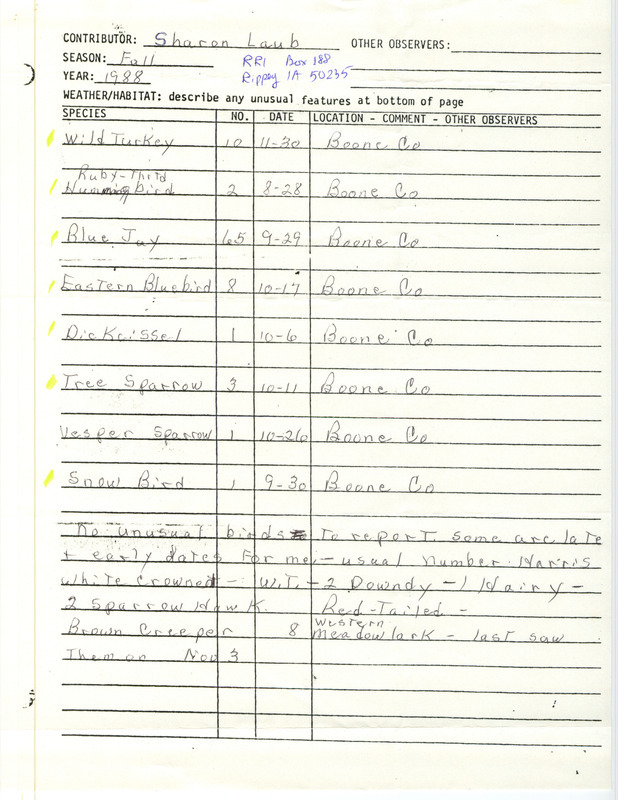 CONTRIBUTOR: Sharon Laub OTHER OBSERVERS:
SEASON: Fall RR1 Box 188
YEAR: 1988 Rippey IA 50235
WEATHER/HABITAT: describe any unusual features at bottom of page
SPECIES NO. DATE LOCATION - COMMENT - OTHER OBSERVERS
Wild Turkey 10 11-30 Boone Co
Ruby-Thrtd
Hummingbird 2 8-28 Boone Co
Blue Jay 65 9-29 Boone Co
Eastern Bluebird 8 10-17 Boone Co
Dickcissel 1 10-6 Boone Co
Tree Sparrow 3 10-11 Boone Co
Vesper Sparrow 1 10-26 Boone Co
Snow Bird 1 9-30 Boone Co
No unusual birds to report. some are late
+ early dates for me, - usual number Harris
White Crowned - W.T. - 2 Downdy - 1 Hairy -
2 Sparrow Hawk. Red-Tailed -
Brown Creeper 8 Western Meadowlark - last saw
Them on Nov 3